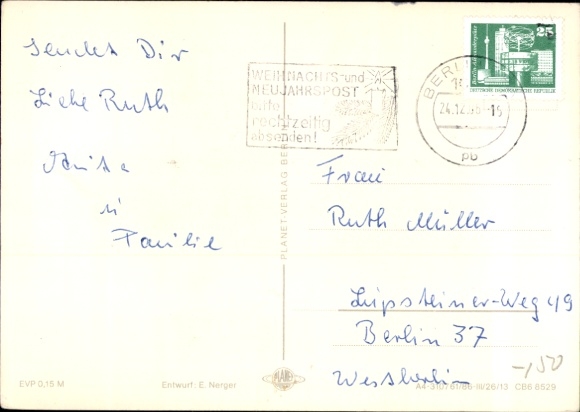 sendet Dir
Liebe Ruth
Anita
u
Familie
WEIHNACHTS- und
NEUJAHRSPOST
bitte
rechtzeitig
absenden!
BERLIN
24.12.
-15
pb
25
DEUTSCHE DEMOKRATISCHE REPUBLIK
PLANET-VERLAG BERLIN
Frau
Ruth Müller
Lippsteiner-Weg 49
Berlin 37
Westberlin
-,50
EVP 0,15 M
Entwurf: E. Nerger
PLANET
CB6 8529